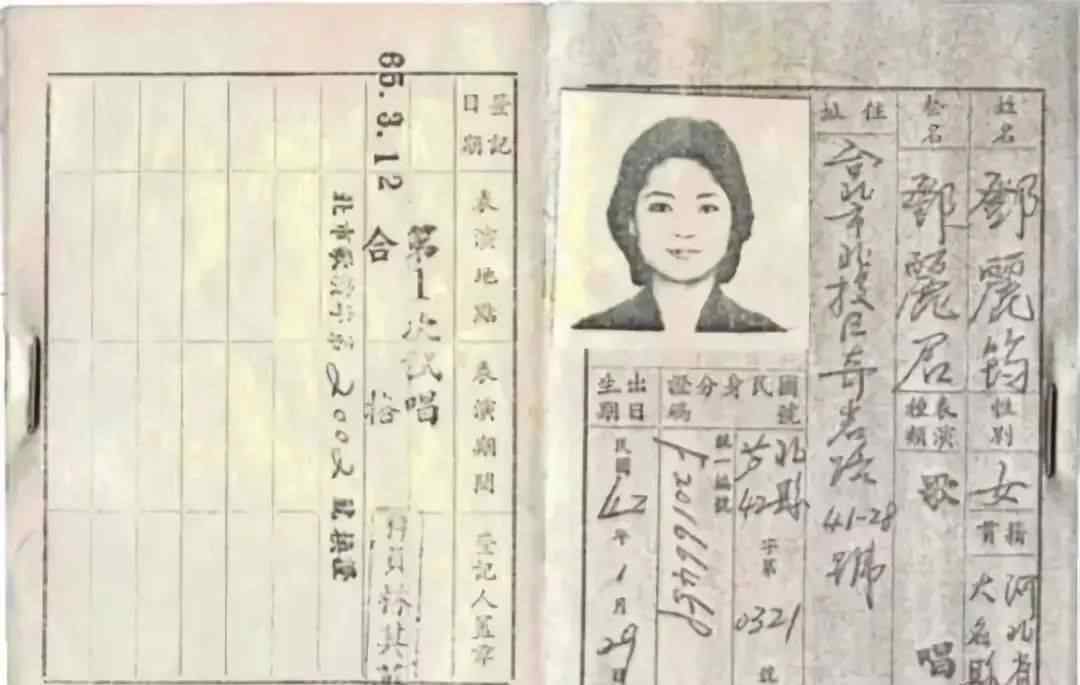 姓名
鄧麗筠
性別
女
籍貫
河北省
大名縣
藝名
鄧麗君
表演種類
歌唱
住址
台北市北投區奇岩路41-28號
國民身分證號碼
北縣
42字第
0321號
統一編號
出生日期
民國42年1月29日
登記日期
表演地點
表演期間
登記人蓋章
第1次試唱
65.3.12
合格
北市
2002
號換證